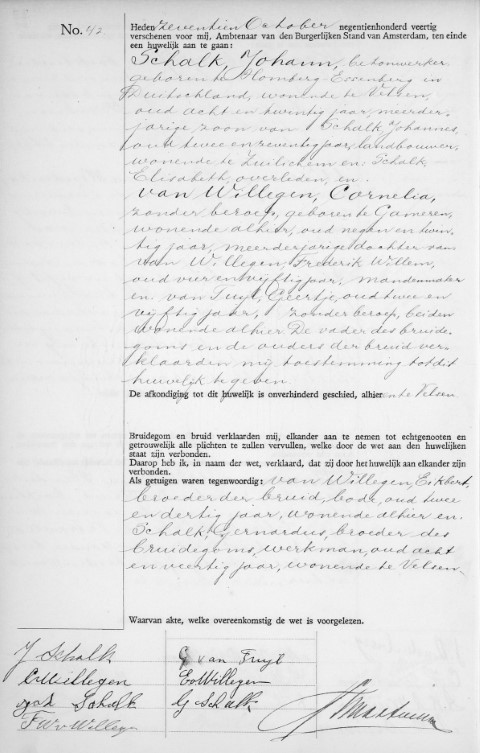 No. 42
Heden zeventien October negentienhonderd veertig
verschenen voor mij, Ambtenaar van den Burgerlijken Stand van Amsterdam, ten einde
een huwelijk aan te gaan:
Schalk, Johann, betonwerker,
geboren te Homberg-Essenberg in
Duitschland, wonende te Velsen,
oud acht en twintig jaar, meerder-
jarige zoon van Schalk, Johannes,
oud twee en zeventig jaar, landbouwer,
wonende te Zuilichem en Schalk
Elisabeth, overleden, en
van Willegen, Cornelia,
zonder beroep, geboren te Gameren,
wonende alhier, oud negen en twin-
tig jaar, meerderjarige dochter van
van Willegen, Frederik Willem,
oud vier en vijftig jaar, mandenmaker
en van Tuyl, Geertje, oud twee en
vijftig jaar, zonder beroep, beiden
wonende alhier. De vader des bruide-
goms en de ouders der bruid ver-
klaarden mij toestemming tot dit
huwelijk te geven.
De afkondiging tot dit huwelijk is onverhinderd geschied, alhier en te Velsen
Bruidegom en bruid verklaarden mij, elkander aan te nemen tot echtgenooten en
getrouwelijk alle plichten te zullen vervullen, welke door de wet aan den huwelijken
staat zijn verbonden.
Daarop heb ik, in naam der wet, verklaard, dat zij door het huwelijk aan elkander zijn
verbonden.
Als getuigen waren tegenwoordig: van Willegen, Eikbert,
broeder der bruid, bode, oud twee
en dertig jaar, wonende alhier en
Schalk, Gernardus, broeder des
bruidegoms, werkman, oud acht
en veertig jaar, wonende te Velsen
Waarvan akte, welke overeenkomstig de wet is voorgelezen.
J Schalk
G van Tuyl
CvWillegen
EvWillegen
Schalk
G Schalk
F W v Willegen